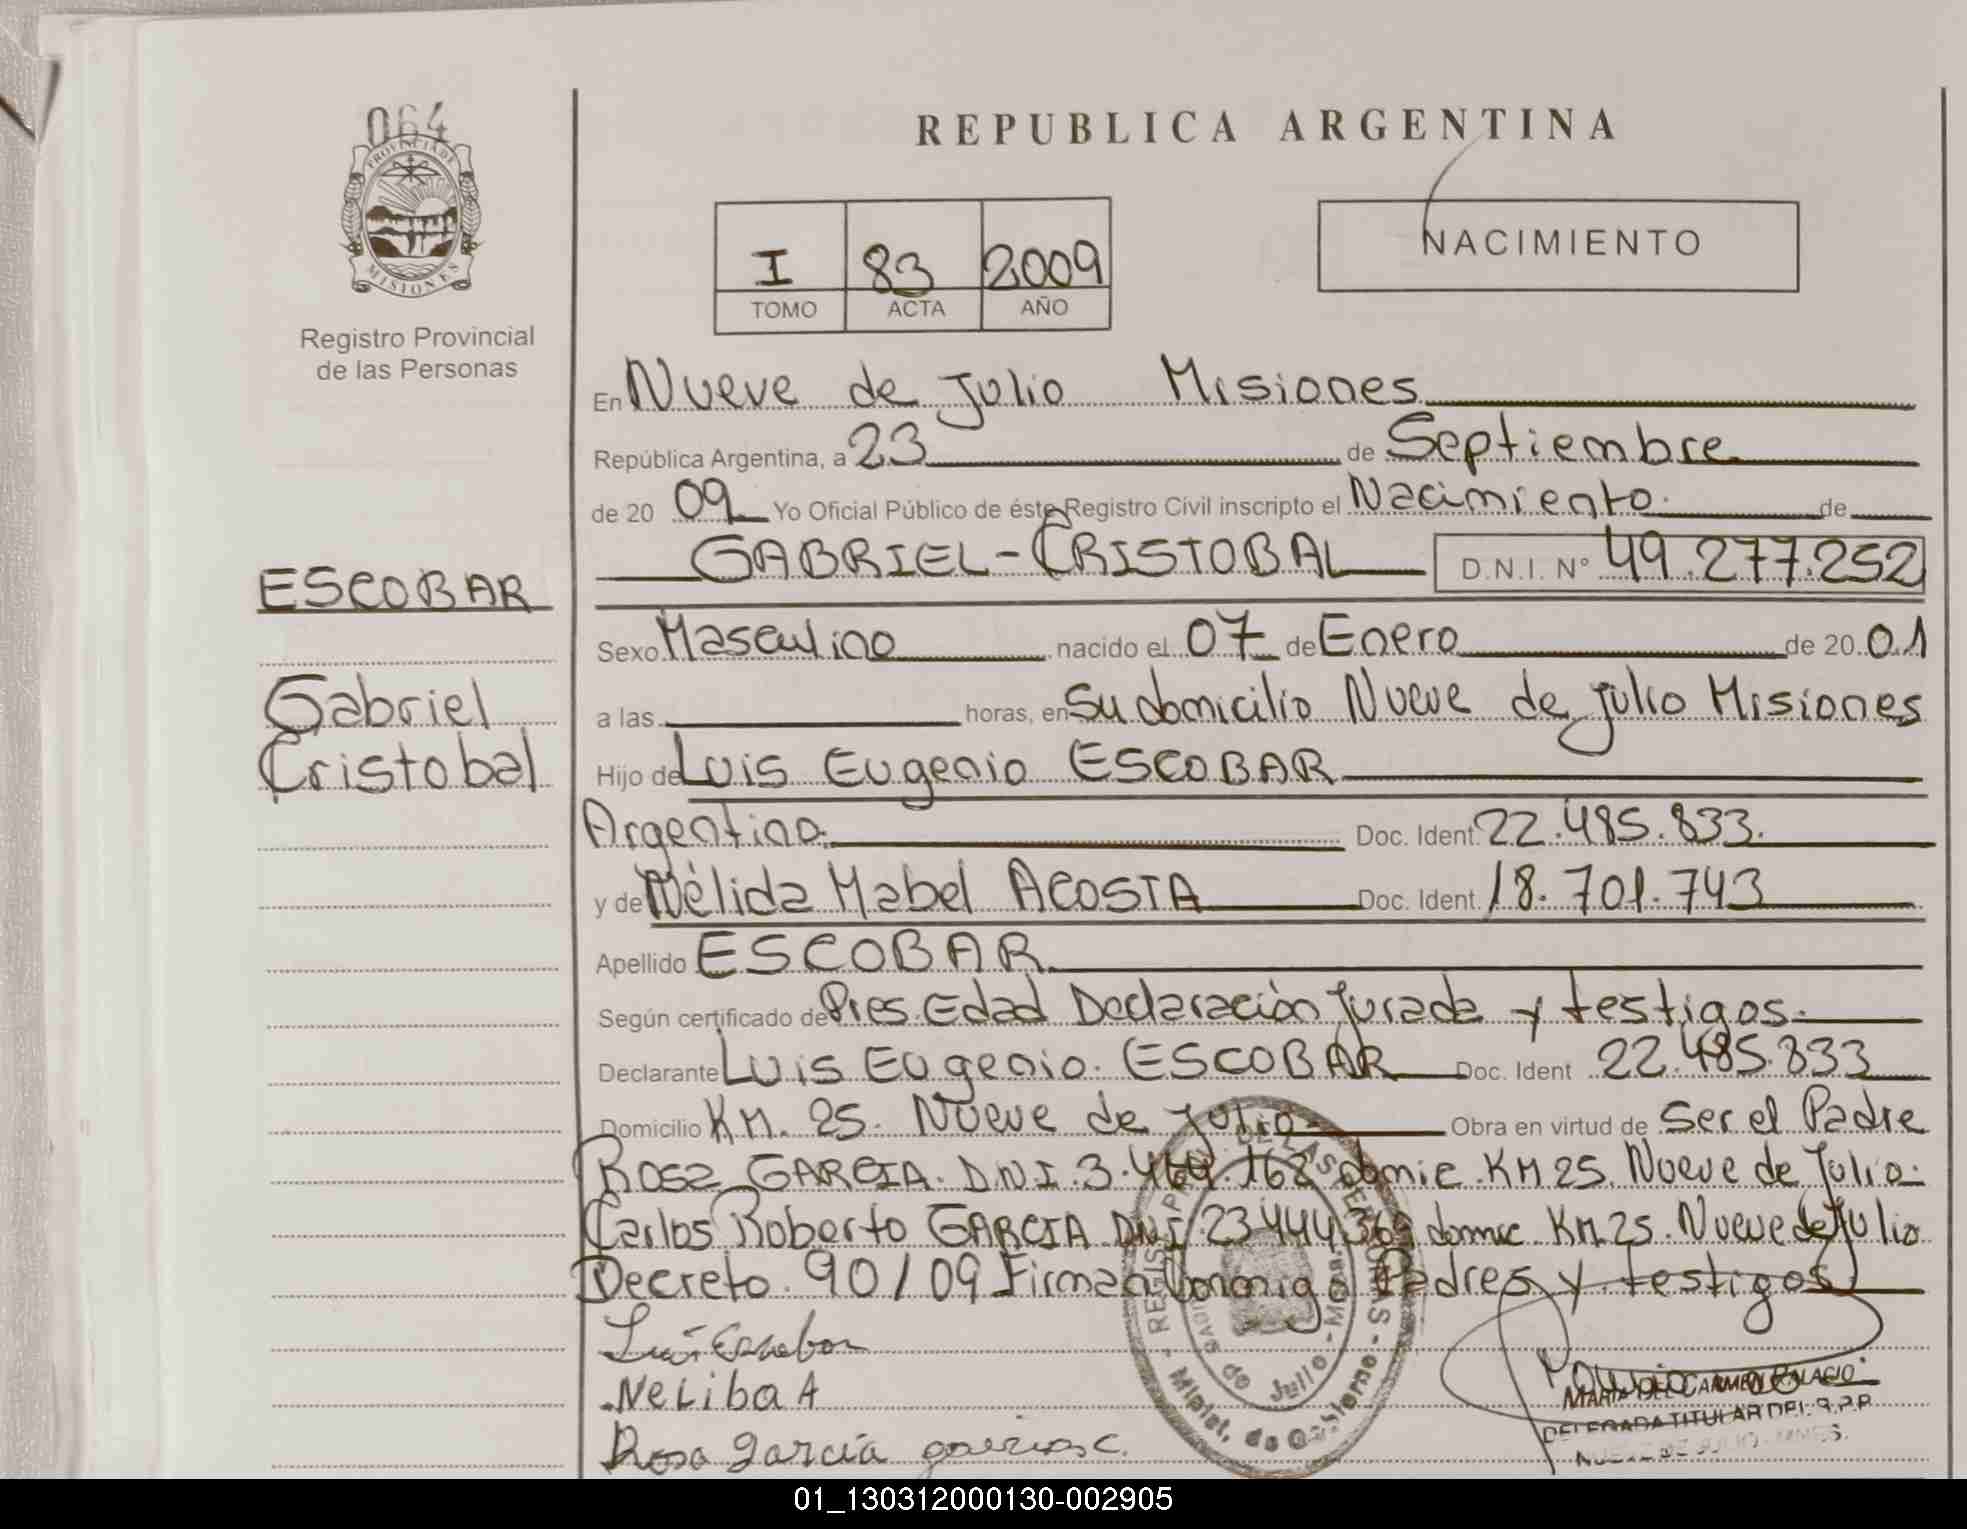 064
PROVINCIA DE
MISIONES
Registro Provincial
de las Personas
ESCOBAR
Gabriel
Cristobal
REPUBLICA ARGENTINA
I 83 2009
TOMO ACTA AÑO
NACIMIENTO
En Nueve de Julio Misiones
República Argentina, a 23 de Septiembre
de 20 09 Yo Oficial Público de éste Registro Civil inscripto el Nacimiento de
GABRIEL-CRISTOBAL D.N.I. Nº 49.277.252
Sexo Masculino nacido el 07 de Enero de 20 01
a las horas, en Su domicilio Nueve de Julio Misiones
Hijo de Luis Eugenio ESCOBAR
Argentino. Doc. Ident. 22.485.833.
y de Nélida Mabel ACOSTA Doc. Ident. 18.701.743
Apellido ESCOBAR
Según certificado de Pres. Edad Declaración Jurada y testigos.
Declarante Luis Eugenio. ESCOBAR Doc. Ident 22.485.833
Domicilio KM. 25. Nueve de Julio. Obra en virtud de Ser el Padre
Rosa GARCIA. D.N.I. 3.464.162 domic. KM 25. Nueve de Julio.
Carlos Roberto GARCIA DNI 23444369 domic. KM 25. Nueve de Julio
Decreto. 90/09 Firman Conmigo Padres y testigos
Luis Escobar
Neliba A
Rosa garcía
MARIA DEL CARMEN PALACIO
DELEGADA TITULAR DEL R.P.P.
NUEVE DE JULIO - MNES.
01_130312000130-002905